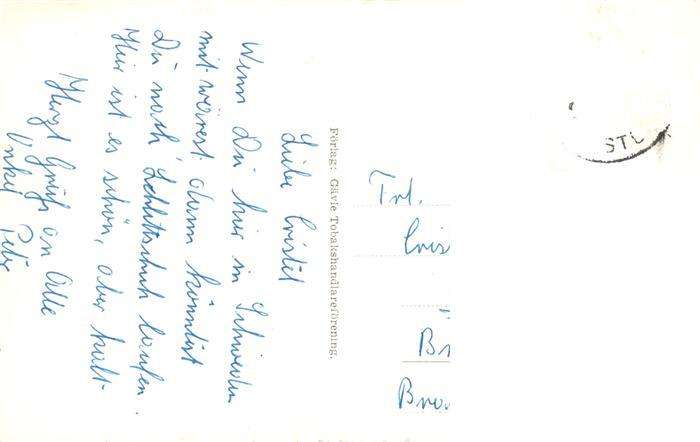 Liebe Cristel
Wenn Du hier in Schweden
mit wärest dann könntest
Du noch Schlittschuh laufen.
Hier ist es schön, aber kalt.
Herzl Grüße an Alle
Onkel Peter
Förlag: Gävle Tobakshandlareförening.
Frl.
Cris
Br
Bre
STL